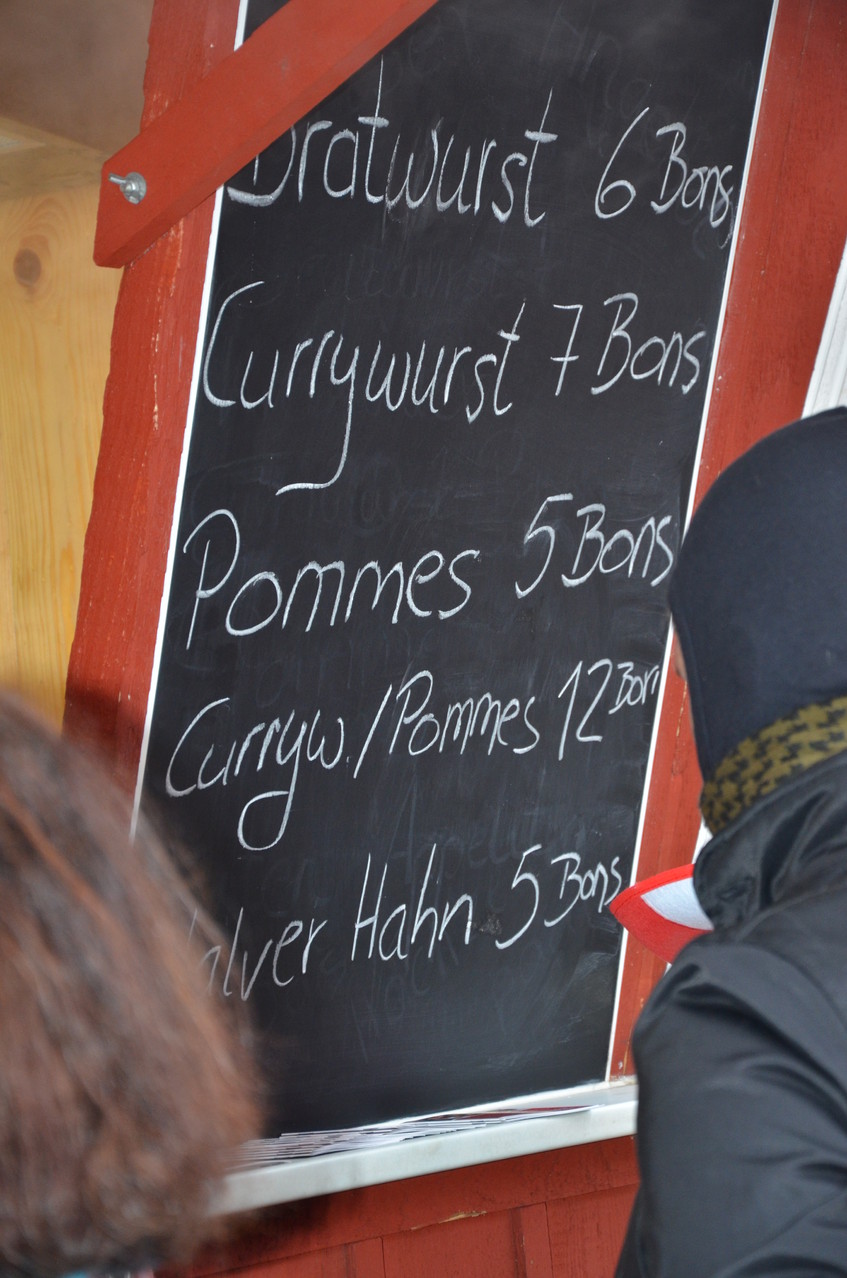 Bratwurst 6 Bons
Currywurst 7 Bons
Pommes 5 Bons
Curryw./Pommes 12 Bon
Halver Hahn 5 Bons